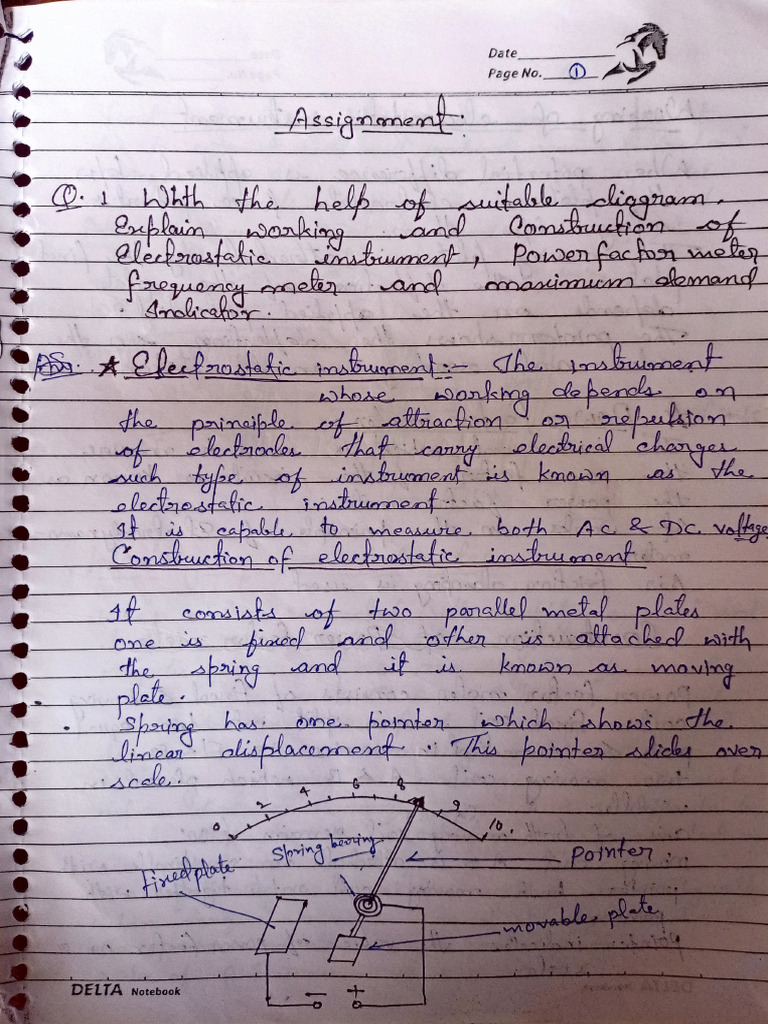 Date
Page No. 1
Assignment.
Q. 1 Whth the help of suitable diagram.
Explain working and Construction of
Electrostatic instrument, Powerfactor meter
frequency meter and maximum demand
Indicator.
ANS. ★ Electrostatic instrument:- The Instrument
whose working depends on
the principle of attraction or repulsion
of electrodes that carry electrical charges
such type of instrument is known as the
electrostatic instrument.
It is capable to measure both AC & DC voltage
Construction of electrostatic instrument
It consists of two parallel metal plates
one is fixed and other is attached with
the spring and it is known as moving
plate.
Spring has one pointer which shows the
linear displacement. This pointer slides over
scale.
0 2 4 6 8 9 10.
Spring bearing
Pointer.
fixed plate
movable plate
- +
DELTA Notebook